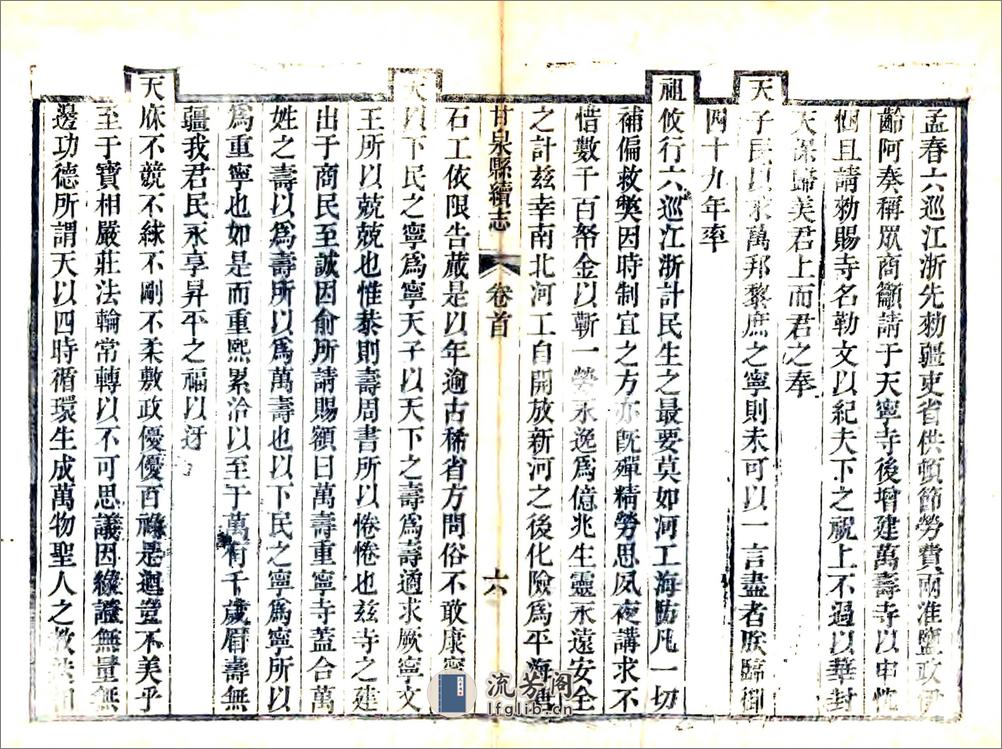 孟春六巡江浙先勅疆吏省供頓節勞費兩淮鹽政伊
齡阿奏稱眾商籲請于天寧寺後增建萬壽寺以申忱
悃且請勅賜寺名勒文以紀夫下之祝上不過以華封
天保歸美君上而君之奉
天子民以求萬邦黎庶之寧則未可以一言盡者朕臨御
四十九年率
祖攸行六巡江浙計民生之最要莫如河工海防凡一切
補偏救獘因時制宜之方亦旣殫精勞思夙夜講求不
惜數千百帑金以蘄一勞永逸爲億兆生靈永遠安全
之計茲幸南北河工自開放新河之後化險爲平海塘
甘泉縣續志 卷首 六
石工依限告蕆是以年逾古稀省方問俗不敢康寧
天以下民之寧爲寧天子以天下之壽爲壽遹求厥寧文
王所以兢兢也惟恭則壽周書所以惓惓也茲寺之建
出于商民至誠因俞所請賜額曰萬壽重寧寺蓋合萬
姓之壽以爲壽所以爲萬壽也以下民之寧爲寧所以
爲重寧也如是而重熙累洽以至于萬有千歲眉壽無
疆我君民永享昇平之福以迓
天庥不競不絿不剛不柔敷政優優百祿是遒豈不美乎
至于寶相嚴莊法輪常轉以不可思議因緣證無量無
邊功德所謂天以四時循環生成萬物聖人之教法
流芳閣
lfglib.cn